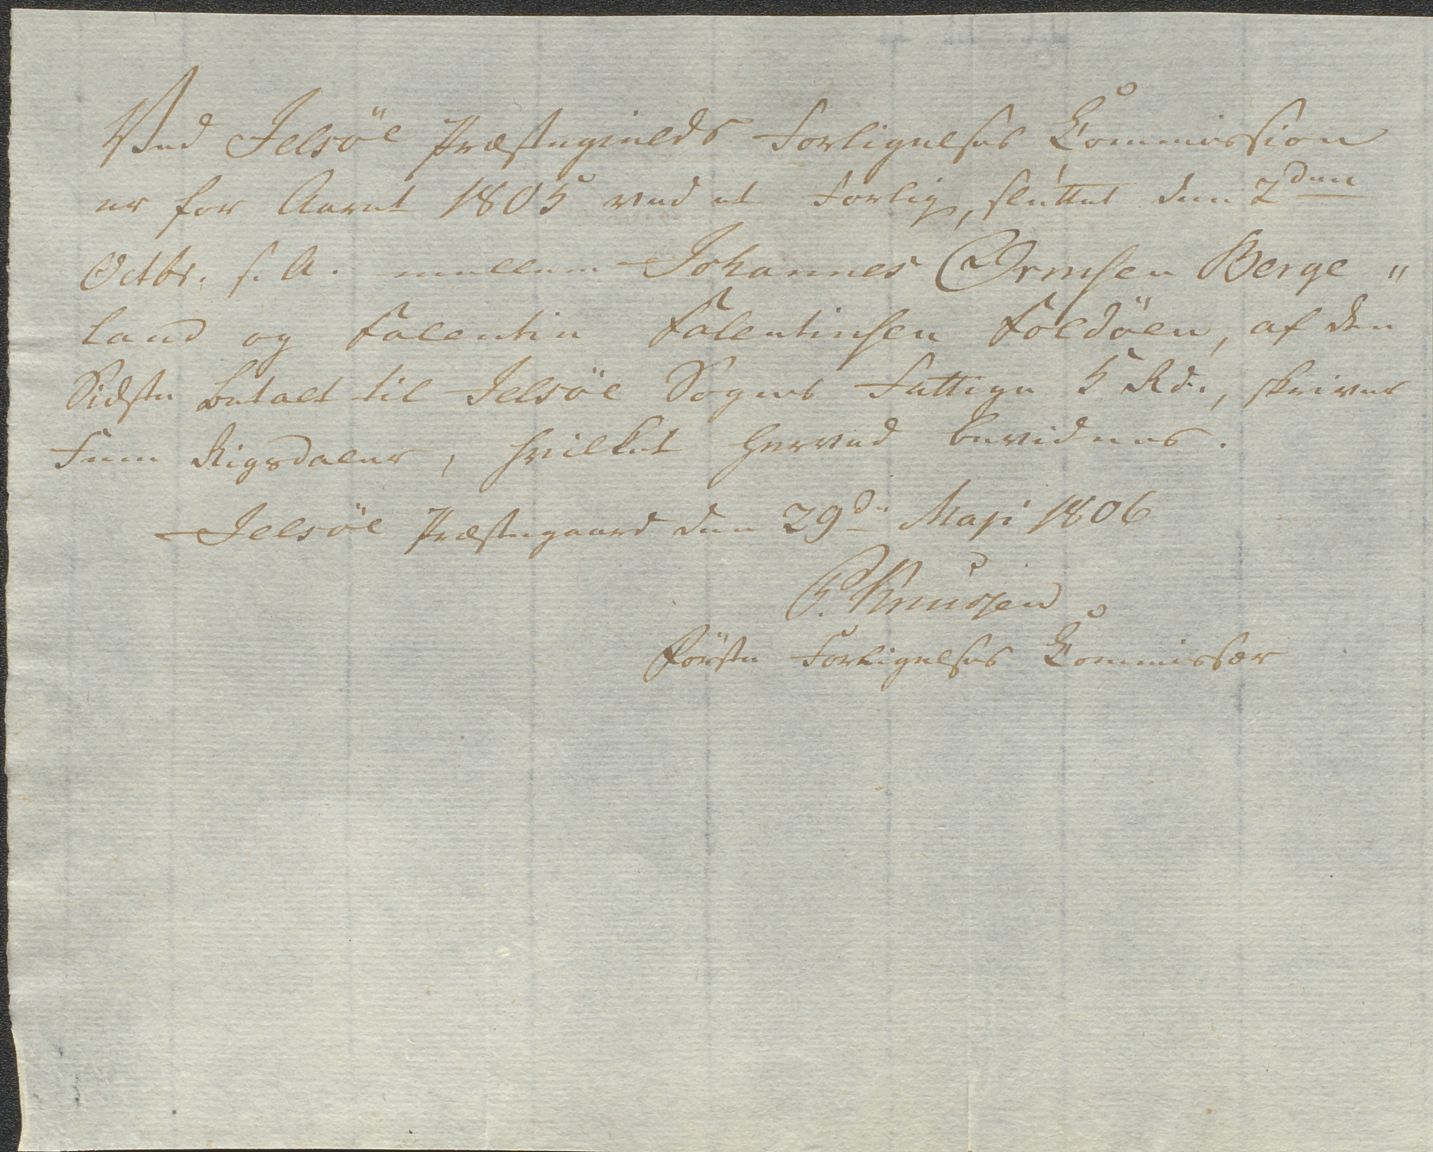 Ved Jelsöe Præstegields Forligelses Commission
er for Aaret 1805 ved et Forlig, sluttet den 2den
Octbr. s. A. mellem Johannes Ormsen Berge "
land og Falentin Falentinsen Foldöen, af den
Sidste betalt til Jelsöe Sogns Fattige 5 Rd., skriver
Fem Rigsdaler, hvilket herved bevidnes.
Jelsöe Præstegaard den 29d. Maji 1806
Knudsen
förste Forligelses Commissær